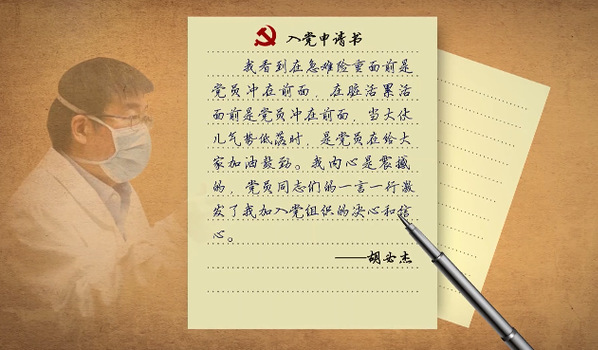 入党申请书
我看到在急难险重面前是
党员冲在前面，在脏活累活
面前是党员冲在前面，当大伙
儿气势低落时，是党员在给大
家加油鼓劲。我内心是震撼
的，党员同志们的一言一行激
发了我加入党组织的决心和信
心。
——胡必杰